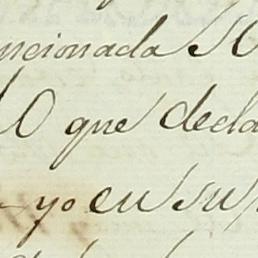 ncionada SO
lO que decla
yo en sup